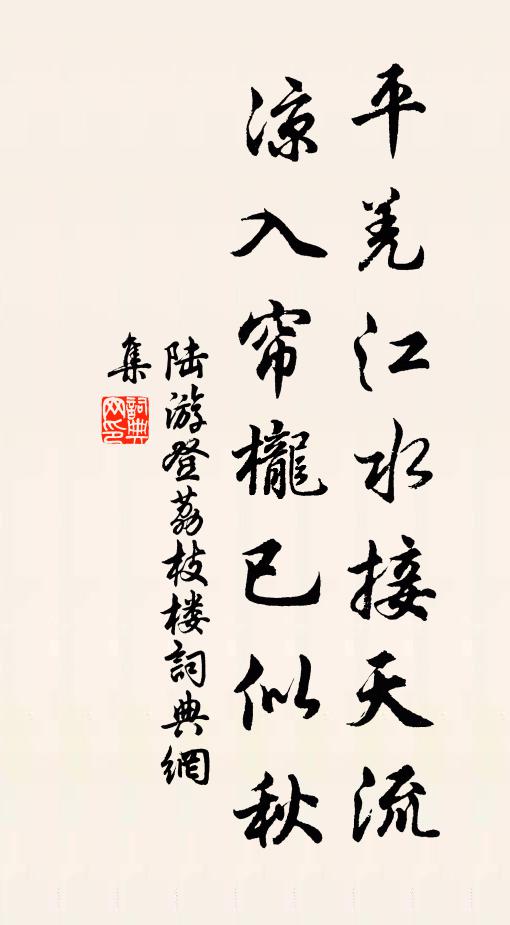 平羌江水接天流
凉入帘櫳已似秋
陆游登荔枝楼詞典網
集
詞典網印